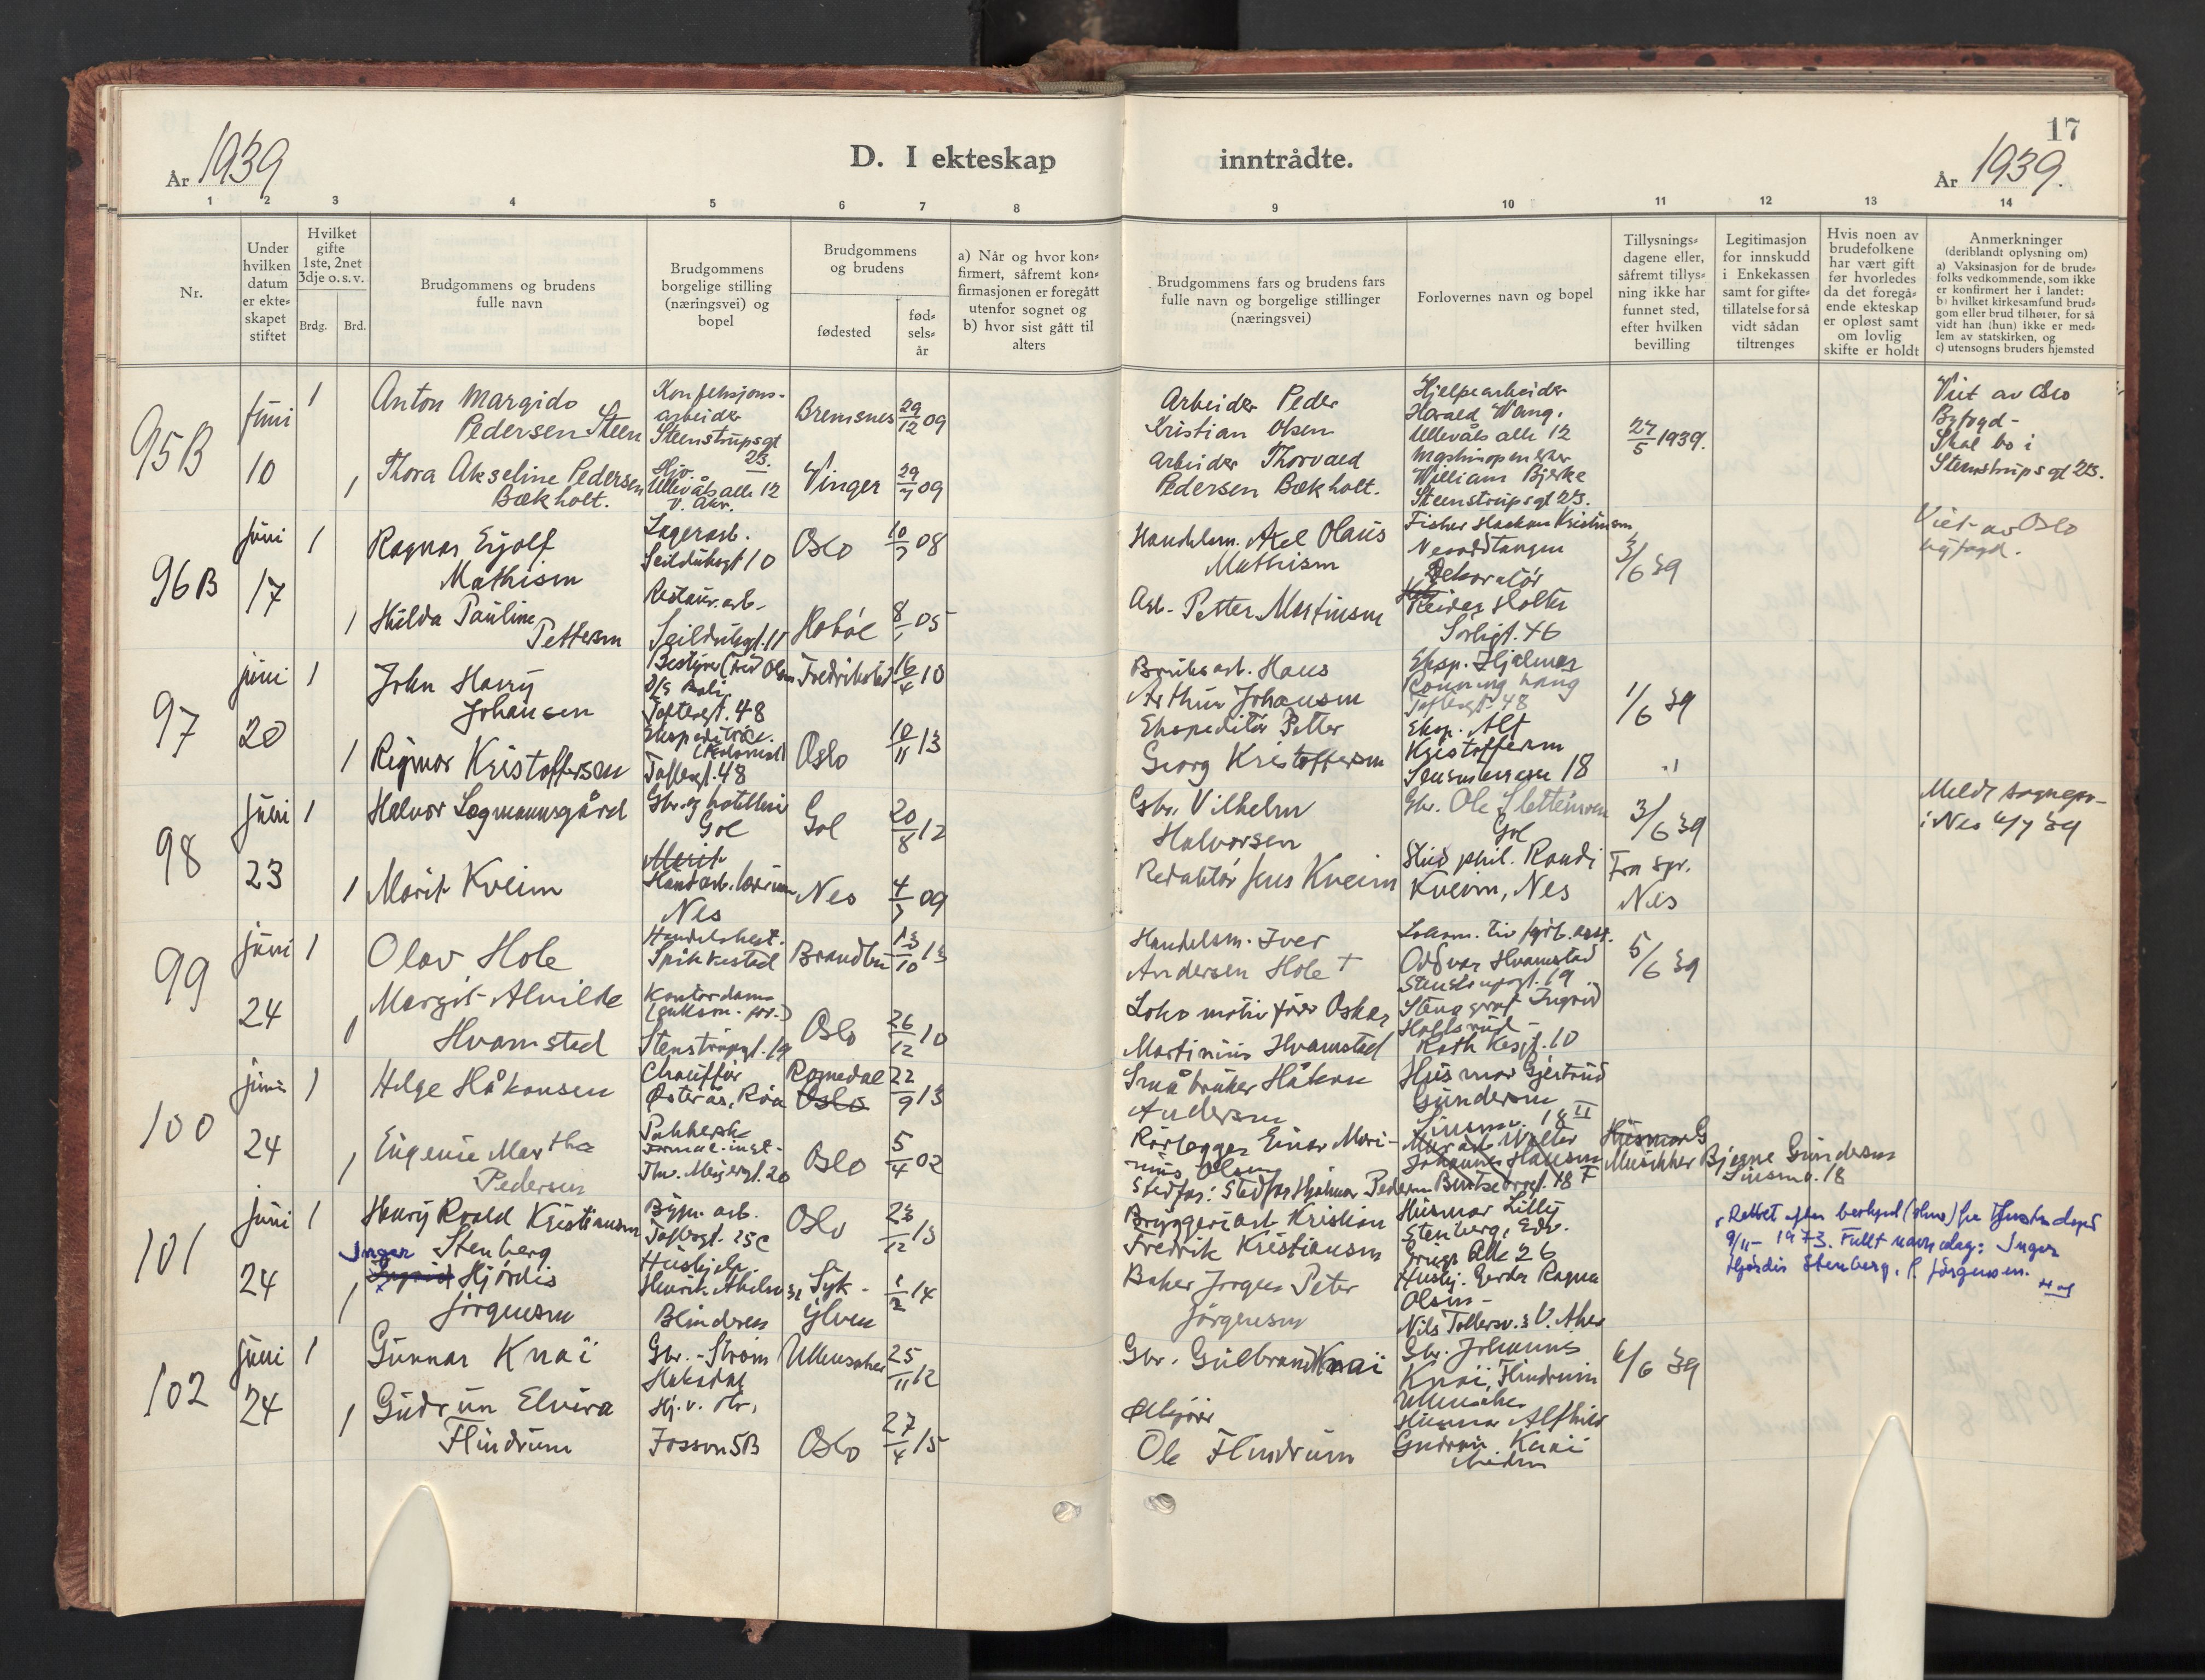 År 1939
D. I ekteskap
inntrådte.
17
År 1939.
1
2
3
4
5
6
7
8
9
10
11
12
13
14
Nr.
Under
hvilken
datum
er ekte-
skapet
stiftet
Hvilket
gifte
1ste, 2net
3dje o.s.v.
Brdg. Brd.
Brudgommens og brudens
fulle navn
Brudgommens
borgelige stilling
(næringsvei) og
bopel
Brudgommens
og brudens
fødested
fød-
sels-
år
a) Når og hvor kon-
firmert, såfremt kon-
firmasjonen er foregått
utenfor sognet og
b) hvor sist gått til
alters
Brudgommens fars og brudens fars
fulle navn og borgelige stillinger
(næringsvei)
Forlovernes navn og bopel
Tillysnings-
dagene eller,
såfremt tillys-
ning ikke har
funnet sted,
efter hvilken
bevilling
Legitimasjon
for innskudd
i Enkekassen
samt for gifte-
tillatelse for så
vidt sådan
tiltrenges
Hvis noen av
brudefolkene
har vært gift
før hvorledes
da det foregå-
ende ekteskap
er opløst samt
om lovlig
skifte er holdt
Anmerkninger
(deriblandt oplysning om)
a) Vaksinasjon for de brude-
folks vedkommende, som ikke
er konfirmert her i landet:
b) hvilket kirkesamfund brud-
gom eller brud tilhører, for så
vidt han (hun) ikke er med-
lem av statskirken, og
c) utensogns bruders hjemsted
95B
juni
10
1
1
Anton Margido
Pedersen Steen
Thora Akseline Pedersen
Bækholt.
Konfeksjons-
arbeider
Steenstrupsgt
23.
Ullevåls alle 12
Bremsnes 29/12 09
Vinger 29/7 09
Arbeider Peder
Kristian Olsen
Arbeider Thorvald
Pedersen Bækholt.
Hjelpearbeider
Harald Wang.
Ullevåls alle 12
William Bjerke
Steenstrupsgt 23.
27/5 1939.
Viet av Oslo
Byfogd -
Skal bo i
Steenstrupsgt 23.
96B
juni
17
1
1
Ragnar Eyolf
Mathisen
Hilda Pauline
Pettersen
Lagerarb.
Seilduksgt 10
Restaur. arb.
Seilduksgt. 11
Oslo 10/7 08
Hobøl 8/1 05
Handelsm. Axel Olaus
Mathisen
Arb. Petter Martinsen
Fisker Haakon Kristiansen
Nesoddtangen
Dekoratør
Reidar Holter
Sørligt. 46
3/6 39
Viet av Oslo
byfogd.
97
juni
20
1
1
John Harry
Johansen
Rigmor Kristoffersen
Toftesgt. 48
Ekspeditrise
Toftesgt. 48
Fredrikstad 16/4 10
Oslo 10/11 13
Bruksarb. Hans
Arthur Johansen
Ekspeditør Petter
Georg Kristoffersen
Eksp. Hjalmar
Toftesgt. 48
Eksp. Alf
Kristoffersen
1/6 39
98
juni
23
1
1
Halvor Lagmannsgård
Marit Kveim
Gol
Nes
Gol 20/8 12
Nes 4/7 09
Gbr. Vilhelm
Halvorsen
Redaktør Jens Kveim
Gol
Stud. phil. Randi
Kveim, Nes
3/6 39
Fra spr.
Nes
Meldt sognepr.
i Nes 4/7 39
99
juni
24
1
1
Olav Hole
Margit Alvilde
Hvamsted
Handelsbest.
Spikkestad
Kontordame
Stenstrupgt. 19
Brandbu 13/10 13
Oslo 26/12 10
Handelsm. Iver
Andersen Hole +
Lokomotivfører Oskar
Martinius Hvamsted
Oddvar Hvamstad
Stenstrupgt. 19
Stenograf Ingrid
5/6 39
100
juni
24
1
1
Helge Håkonsen
Eugenie Martha
Pedersen
Chauffør
Østerås, Røa
Thv. Meyersgt. 20
Rognedal 22/9 13
Oslo
Oslo 5/4 02
Småbruker Håkon
Andersen
Rørlegger Einar Mari-
nius Olsen
Stedfar: Stedfar Hjalmar Pedersen
Husmor Gjertrud
Gundersen
Johannes Hansen
Musikker Bjarne Gundersen
101
juni
24
1
1
Henry Roald Kristiansen
Stenberg
Inger
Ingrid Hjørdis
Jørgensen
Toftesgt. 25C
Hushjelp.
Blindern
Oslo 28/12 13
Syk-
kylven 1/2 14
Bryggeriarb. Kristian
Fredrik Kristiansen
Baker Jørgen Peter
Jørgensen
Husmor Lilly
Stenberg, Edv.
Griegs Alle 26
Hushj. Gerda Ragna
Olsen -
9/11 - 1973. Fullt navn idag: Inger
Hjørdis Stenberg, f. Jørgensen.
102
juni
24
1
1
Gunnar Knai
Gudrun Elvira
Flindrum
Gbr. - Strøm
Hakadal
Fossvn 5B
Ullensaker 25/11 12
Oslo 27/4 15
Gbr. Gulbrand Knai
Ole Flindrum
Gbr. Johannes
Knai, Flindrum
Ullensaker
Husmor Alfhild
Gudrun Knai
6/6 39